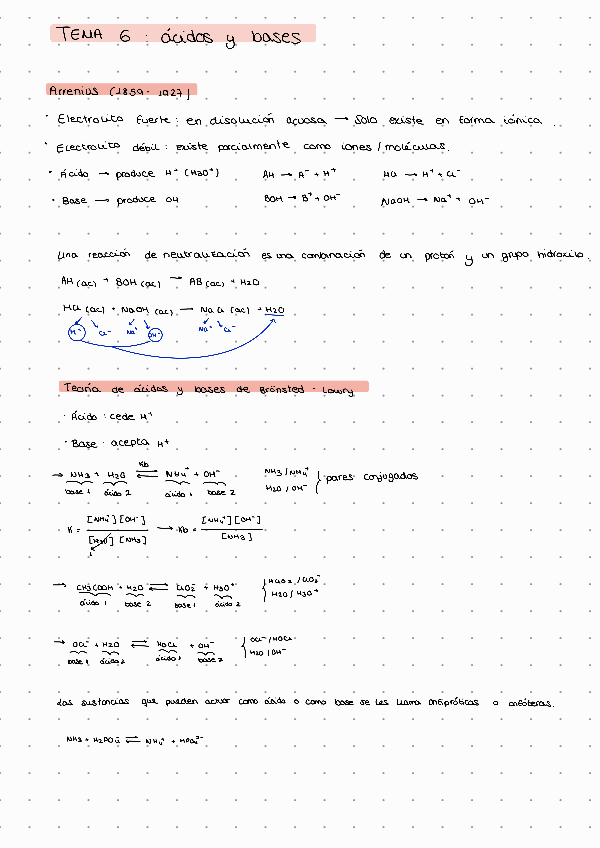 TEMA 6 : ácidos y bases
Arrenius (1859- 1927)
· Electrolito fuerte : en disolución acuosa → Solo existe en forma iónica.
· Electrolito débil : existe parcialmente como iones / moléculas.
· Ácido → produce H⁺ (H3O⁺) AH → A⁻ + H⁺ HCl → H⁺ + Cl⁻
· Base → produce OH BOH → B⁺ + OH⁻ NaOH → Na⁺ + OH⁻
Una reacción de neutralización es una combinación de un protón y un grupo hidroxilo.
AH (ac) + BOH (ac) → AB (ac) + H2O
HCl (ac) + NaOH (ac) → NaCl (ac) + H2O
H⁺ Cl⁻ Na⁺ OH⁻ Na⁺ Cl⁻
Teoría de ácidos y bases de Brönsted - Lowry
· Ácido : cede H⁺
· Base : acepta H⁺
→ NH3 + H2O ⇌ NH4⁺ + OH⁻ Kb NH3 / NH4⁺ pares conjugados
base 1 ácido 2 ácido 1 base 2 H2O / OH⁻
K = [NH4⁺] [OH⁻] / [H2O] [NH3] → Kb = [NH4⁺] [OH⁻] / [NH3]
→ CH3COOH + H2O ⇌ ClO2⁻ + H3O⁺ { HClO2 / ClO2⁻
ácido 1 base 2 base 1 ácido 2 H2O / H3O⁺
→ OCl⁻ + H2O ⇌ HOCl + OH⁻ { OCl⁻ / HOCl
base 1 ácido 2 ácido 1 base 2 H2O / OH⁻
Las sustancias que pueden actuar como ácido o como base se les llama anfipróticas o anfóteras.
NH3 + H2PO4⁻ ⇌ NH4⁺ + HPO4²⁻